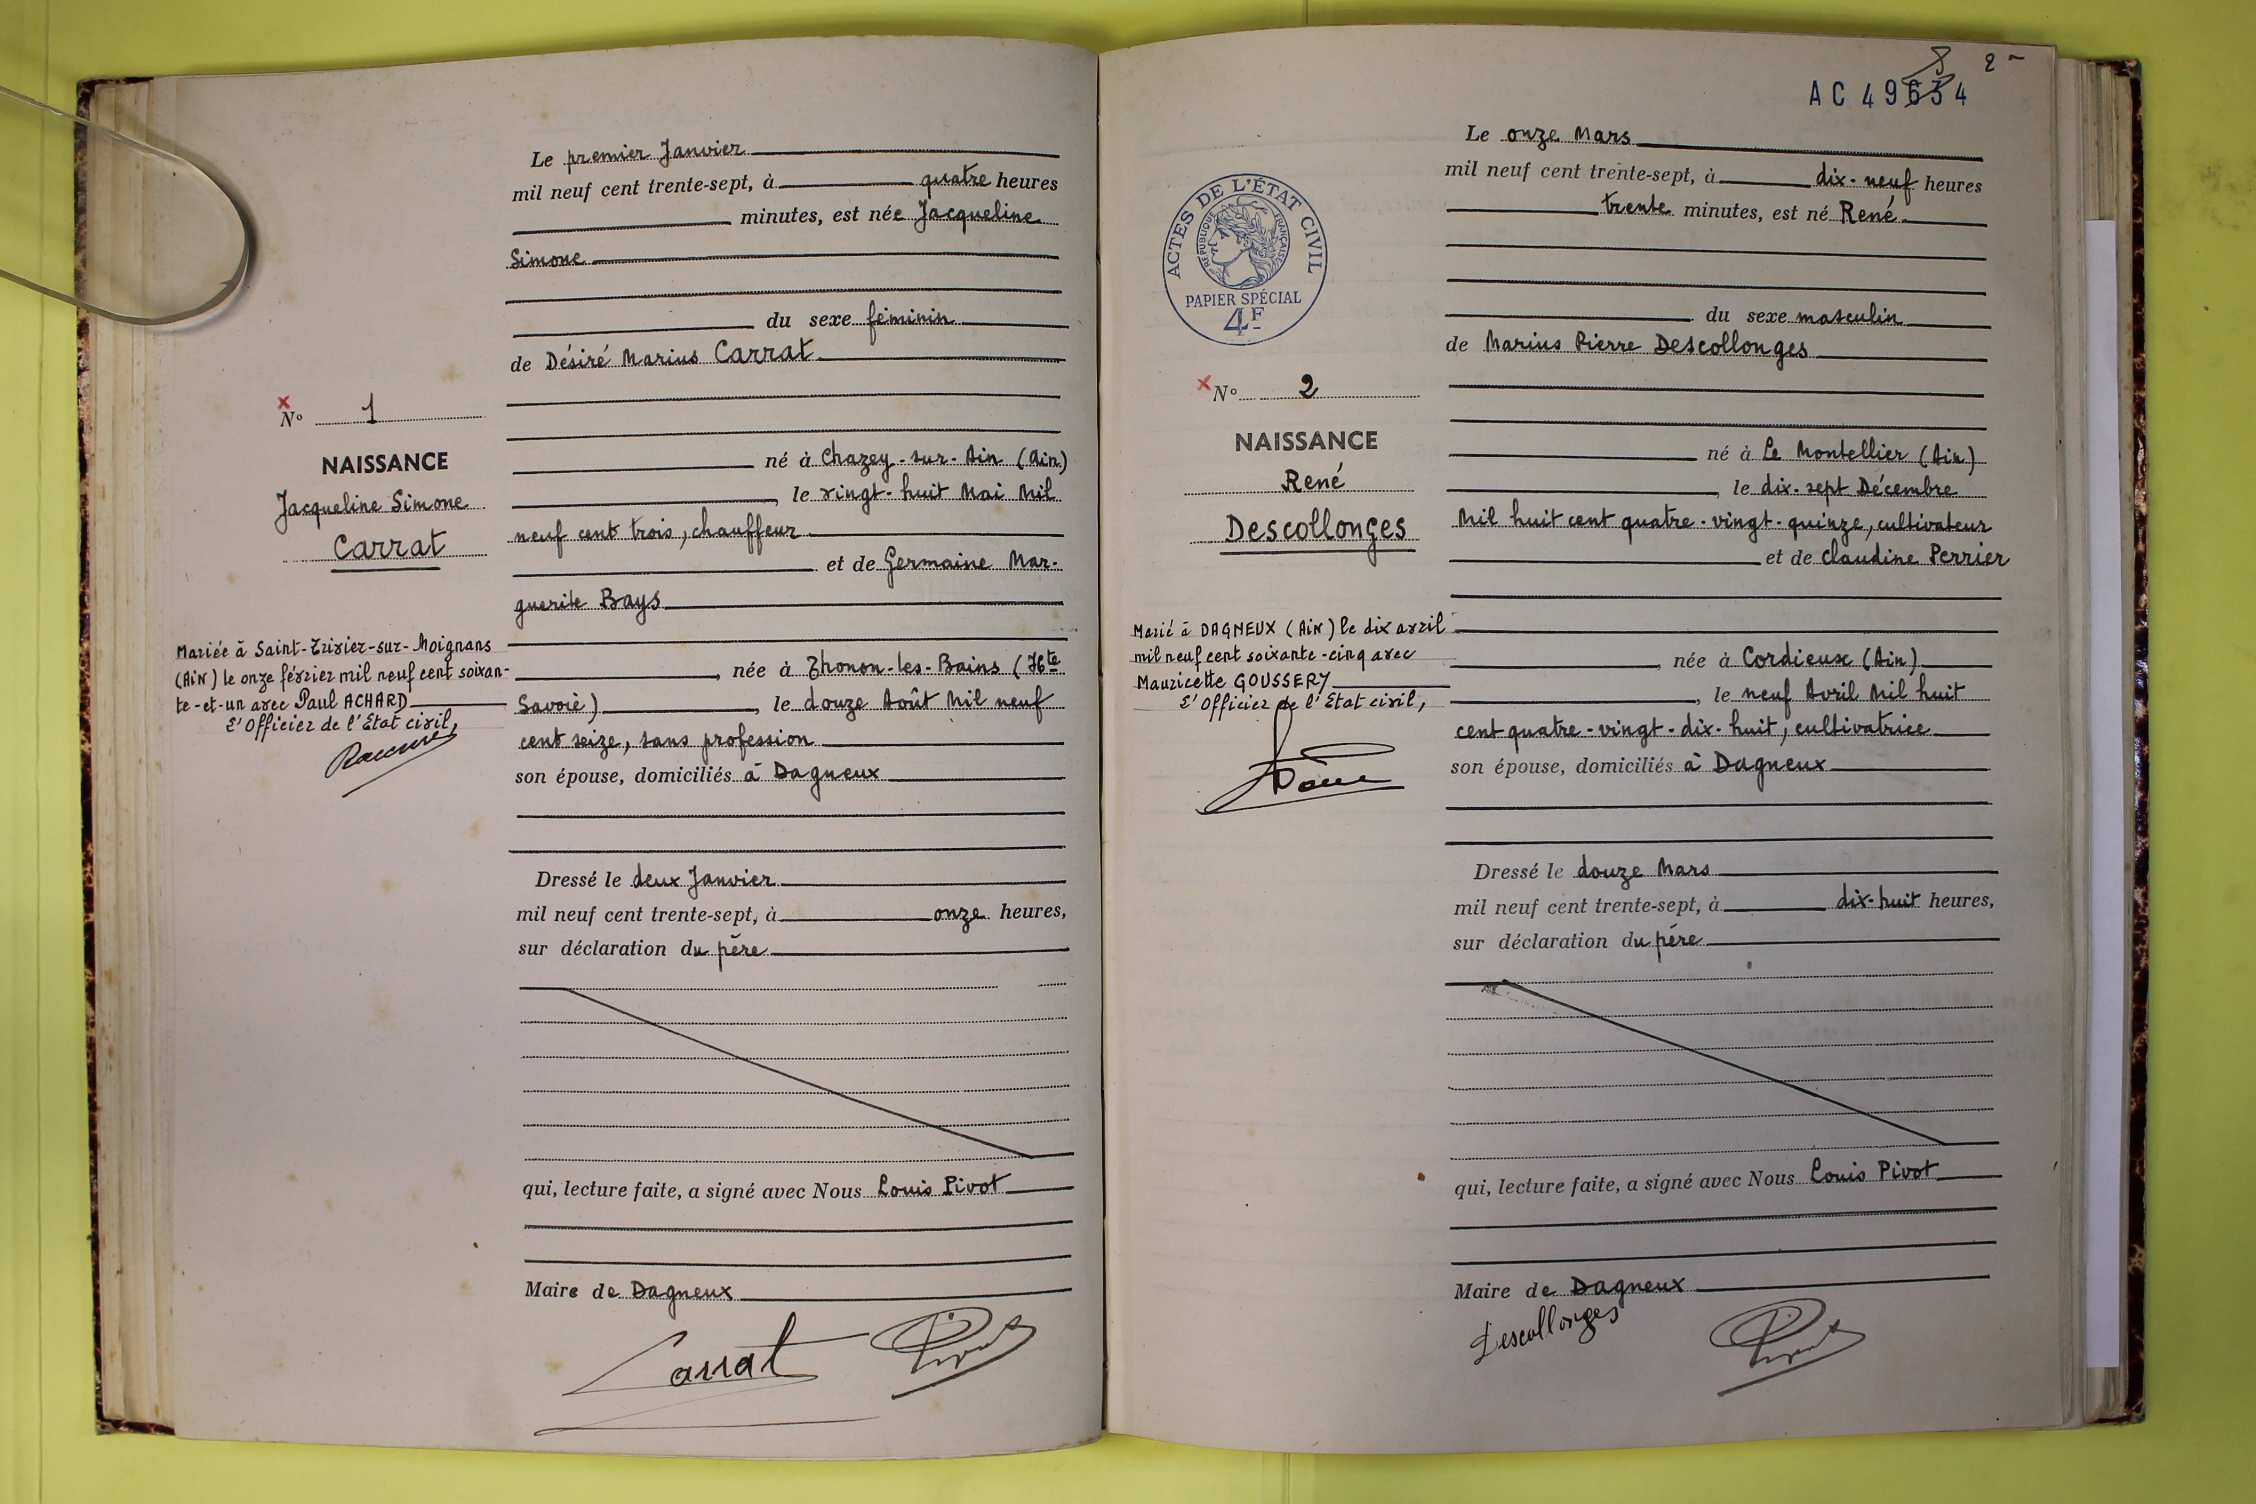 Le premier Janvier
mil neuf cent trente-sept, à quatre heures
minutes, est née Jacqueline
Simone
du sexe féminin
de Désiré Marius Carrat
N° 1
NAISSANCE
Jacqueline Simone
Carrat
né à Chazey-sur-Ain (Ain)
, le vingt-huit Mai Mil
neuf cent trois, chauffeur
et de Germaine Mar-
guerite Bays
Mariée à Saint-Trivier-sur-Moignans
(Ain) le onze février mil neuf cent soixan-
te-et-un avec Paul ACHARD
L'Officier de l'Etat civil,
, née à Thonon-les-Bains (Hte
Savoie), le douze Août Mil neuf
cent seize, sans profession
son épouse, domiciliés à Dagneux
Dressé le deux Janvier
mil neuf cent trente-sept, à onze heures,
sur déclaration du père
qui, lecture faite, a signé avec Nous Louis Pivot
Maire de Dagneux
Carrat Pivot
2
AC 49634
ACTES DE L'ÉTAT CIVIL
RÉPUBLIQUE FRANÇAISE
PAPIER SPÉCIAL
4F
Le onze Mars
mil neuf cent trente-sept, à dix-neuf heures
trente minutes, est né René
du sexe masculin
de Marius Pierre Descollonges
N° 2
NAISSANCE
René
Descollonges
né à Le Montellier (Ain)
, le dix-sept Décembre
Mil huit cent quatre-vingt-quinze, cultivateur
et de Claudine Perrier
Marié à DAGNEUX (Ain) le dix avril
mil neuf cent soixante-cinq avec
Mauricette GOUSSERY
L'Officier de l'Etat civil,
, née à Cordieux (Ain)
, le neuf Avril Mil huit
cent quatre-vingt-dix-huit, cultivatrice
son épouse, domiciliés à Dagneux
Dressé le douze Mars
mil neuf cent trente-sept, à dix-huit heures,
sur déclaration du père
qui, lecture faite, a signé avec Nous Louis Pivot
Maire de Dagneux
Descollonges Pivot